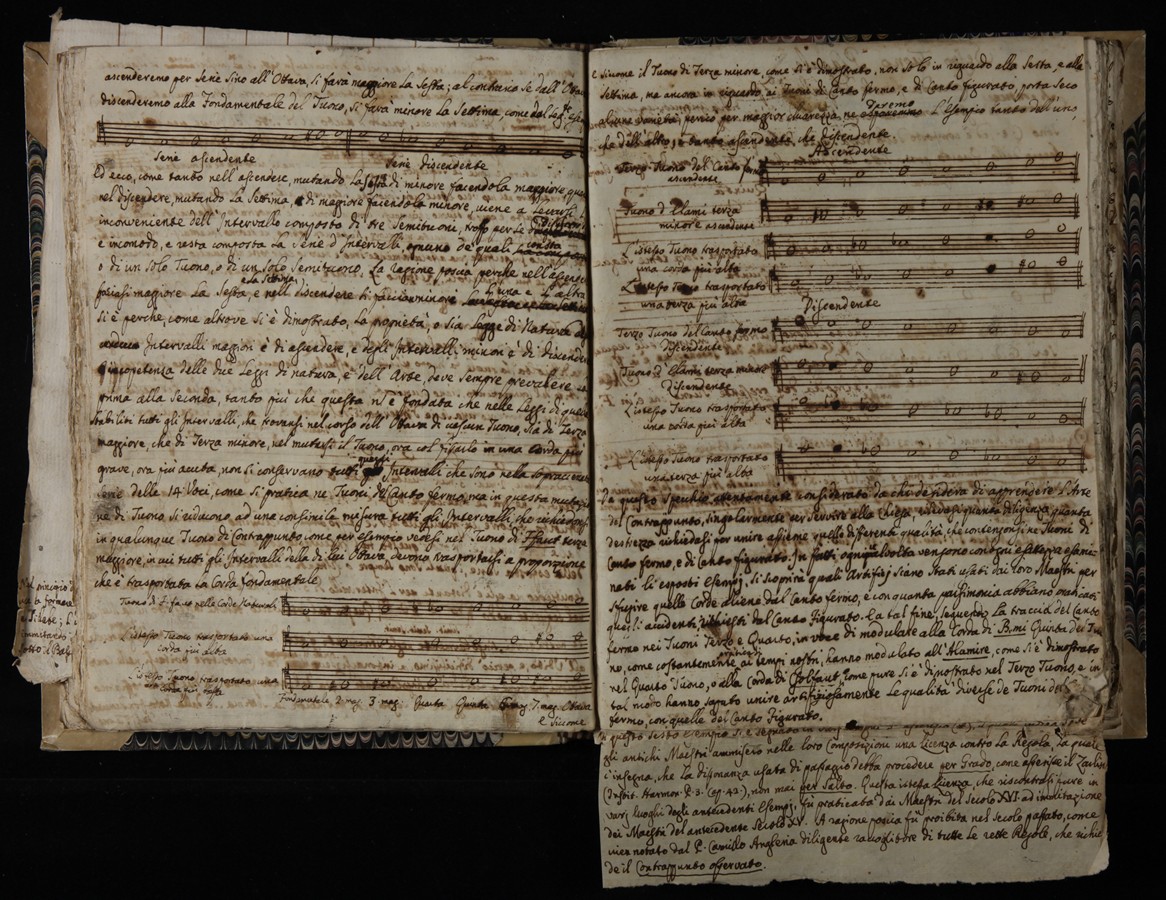 ascenderemo per Serie sino all'Ottava, si farà maggiore la Sesta; al contrario se dall'Ottava
discenderemo alla Fondamentale del Tuono, si farà minore la Settima, come dal Seg.te
Serie ascendente Serie discendente
Ed ecco, come tanto nell'ascendere, mutando la Sesta di minore facendola maggiore, quanto
nel discendere, mutando la Settima, e di magiore facendola minore, viene a levarsi
inconveniente dell'Intervallo composto di tre Semituoni, troppo per se
e incomodo, e resta composta la Serie d'Intervalli ognuno de quali
o di un solo Tuono, o di un solo Semituono. La ragione poscia perche nell'ascendere
e la Settima
facciasi maggiore la Sesta, e nell discendere si facciano minore l'una e l'altra
si è perche, come altrove si è dimostrato, la proprietà, o sia legge di Natura
Intervalli maggiori è di ascendere, e degli Intervalli minori è di discendere
competenza delle due Leggi di natura, e dell'Arte, deve sempre prevalere la
prima alla Seconda, tanto più che questa n'è fondata che nelle Leggi di quella
Stabiliti tutti gli Intervalli, che trovansi nel corso dell'Ottava di ciascun Tuono, sia di Terza
maggiore, che di Terza minore, nel mutarsi il Tuono, ora col fissarlo in una corda più
quegli
grave, ora più acuta, non si conservano tutti Intervalli che sono nella sopracennata
Serie delle 14 Voci, come si pratica ne Tuoni del Canto fermo, ma in questa mutazio-
ne di Tuono si riducono ad una consimile misura tutti gli Intervalli, che richiedonsi
in qualunque Tuono di Contrappunto, come per esempio vedesi nel Tuono di Ffaut terza
maggiore, in cui tutti gli Intervalli della di lui Ottava devono trasportarsi a proporzione
che è trasportata la Corda fondamentale
Tuono di F. faut nelle Corde Naturali
L'istesso Tuono trasportato una
corda più alta
L'istesso Tuono trasportato una
corda più bassa
Fondamentale 2 mag. 3 mag. Quarta Quinta 6 mag. 7 mag. Ottava
E siccome
e siccome il Tuono di Terza minore, come si è dimostrato, non solo in riguardo alla Sesta, e alla
Settima, ma ancora in riguardo ai Tuoni di Canto fermo, e di Canto figurato, porta seco
daremo
alcune varietà; perciò per maggior chiarezza, ne esporremo l'Esempio tanto dell'uno,
che dell'altro, e tanto ascendente, che discendente.
Ascendente
Terzo Tuono del Canto fermo
ascendente
Tuono d'Elami terza
minore ascendente
L'istesso Tuono trasportato
una corda più alta
L'istesso Tuono trasportato
una terza più alta
Discendente
Terzo Tuono del Canto fermo
Discendente
Tuono d'Elami terza minore
Discendente
L'istesso Tuono trasportato
una corda più alta
L'istesso Tuono trasportato
una terza più alta
Da questo specchio attentamente considerato da chi desidera di apprendere l'Arte
del Contrappunto, singolarmente per servire alla Chiesa, vedevasi quanta diligenza, quanta
destrezza richiedasi per unire assieme quelle differenti qualità, che contengonsi ne Tuoni di
Canto fermo, e di Canto figurato. In fatti ogniqualvolta vengono con esattezza esami-
nati li esposti Esempj, si scoprirà quali Artifizj siano stati usati dai loro Maestri per
sfugire quelle Corde aliene dal Canto fermo, e con quanta parsimonia abbiano praticati
quegli accidenti richiesti dal Canto Figurato. E a tal fine, seguendo la traccia del Canto
fermo nei Tuoni Terzo e Quarto, in vece di modulare alla Corda di B,mi Quinta del Tuo-
no, come costantemente ai tempi nostri, hanno modulato all'Alamire, come si è dimostrato
nel Quarto Tuono, o alla Corda di Csolfaut, come pure si è dimostrato nel Terzo Tuono, e in
tal modo hanno saputo unire artifiziosamente le qualità diverse de Tuoni del
fermo, con quelle del Canto Figurato.
gli antichi Maestri ammisero nelle loro Composizioni una Licenza contro la Regola, la quale
c'insegna, che la dissonanza usata di passaggio debba procedere per Grado, come asserisce il Zarlino
(Instit. Harmon. P. 3. Cap. 42.), non mai per Salto. Questa istessa Licenza, che riscontrasi pure in
varj luoghi degli antecedenti Esempj, fu praticata dai Maestri del Secolo XVI. ad imitazione
dei Maestri del antecedente Secolo XV. A ragione poscia fu proibita nel Secolo passato, come
vien notato dal P. Camillo Angleria diligente raccoglitore di tutte le rette Regole, che richie-
de il Contrappunto osservato.